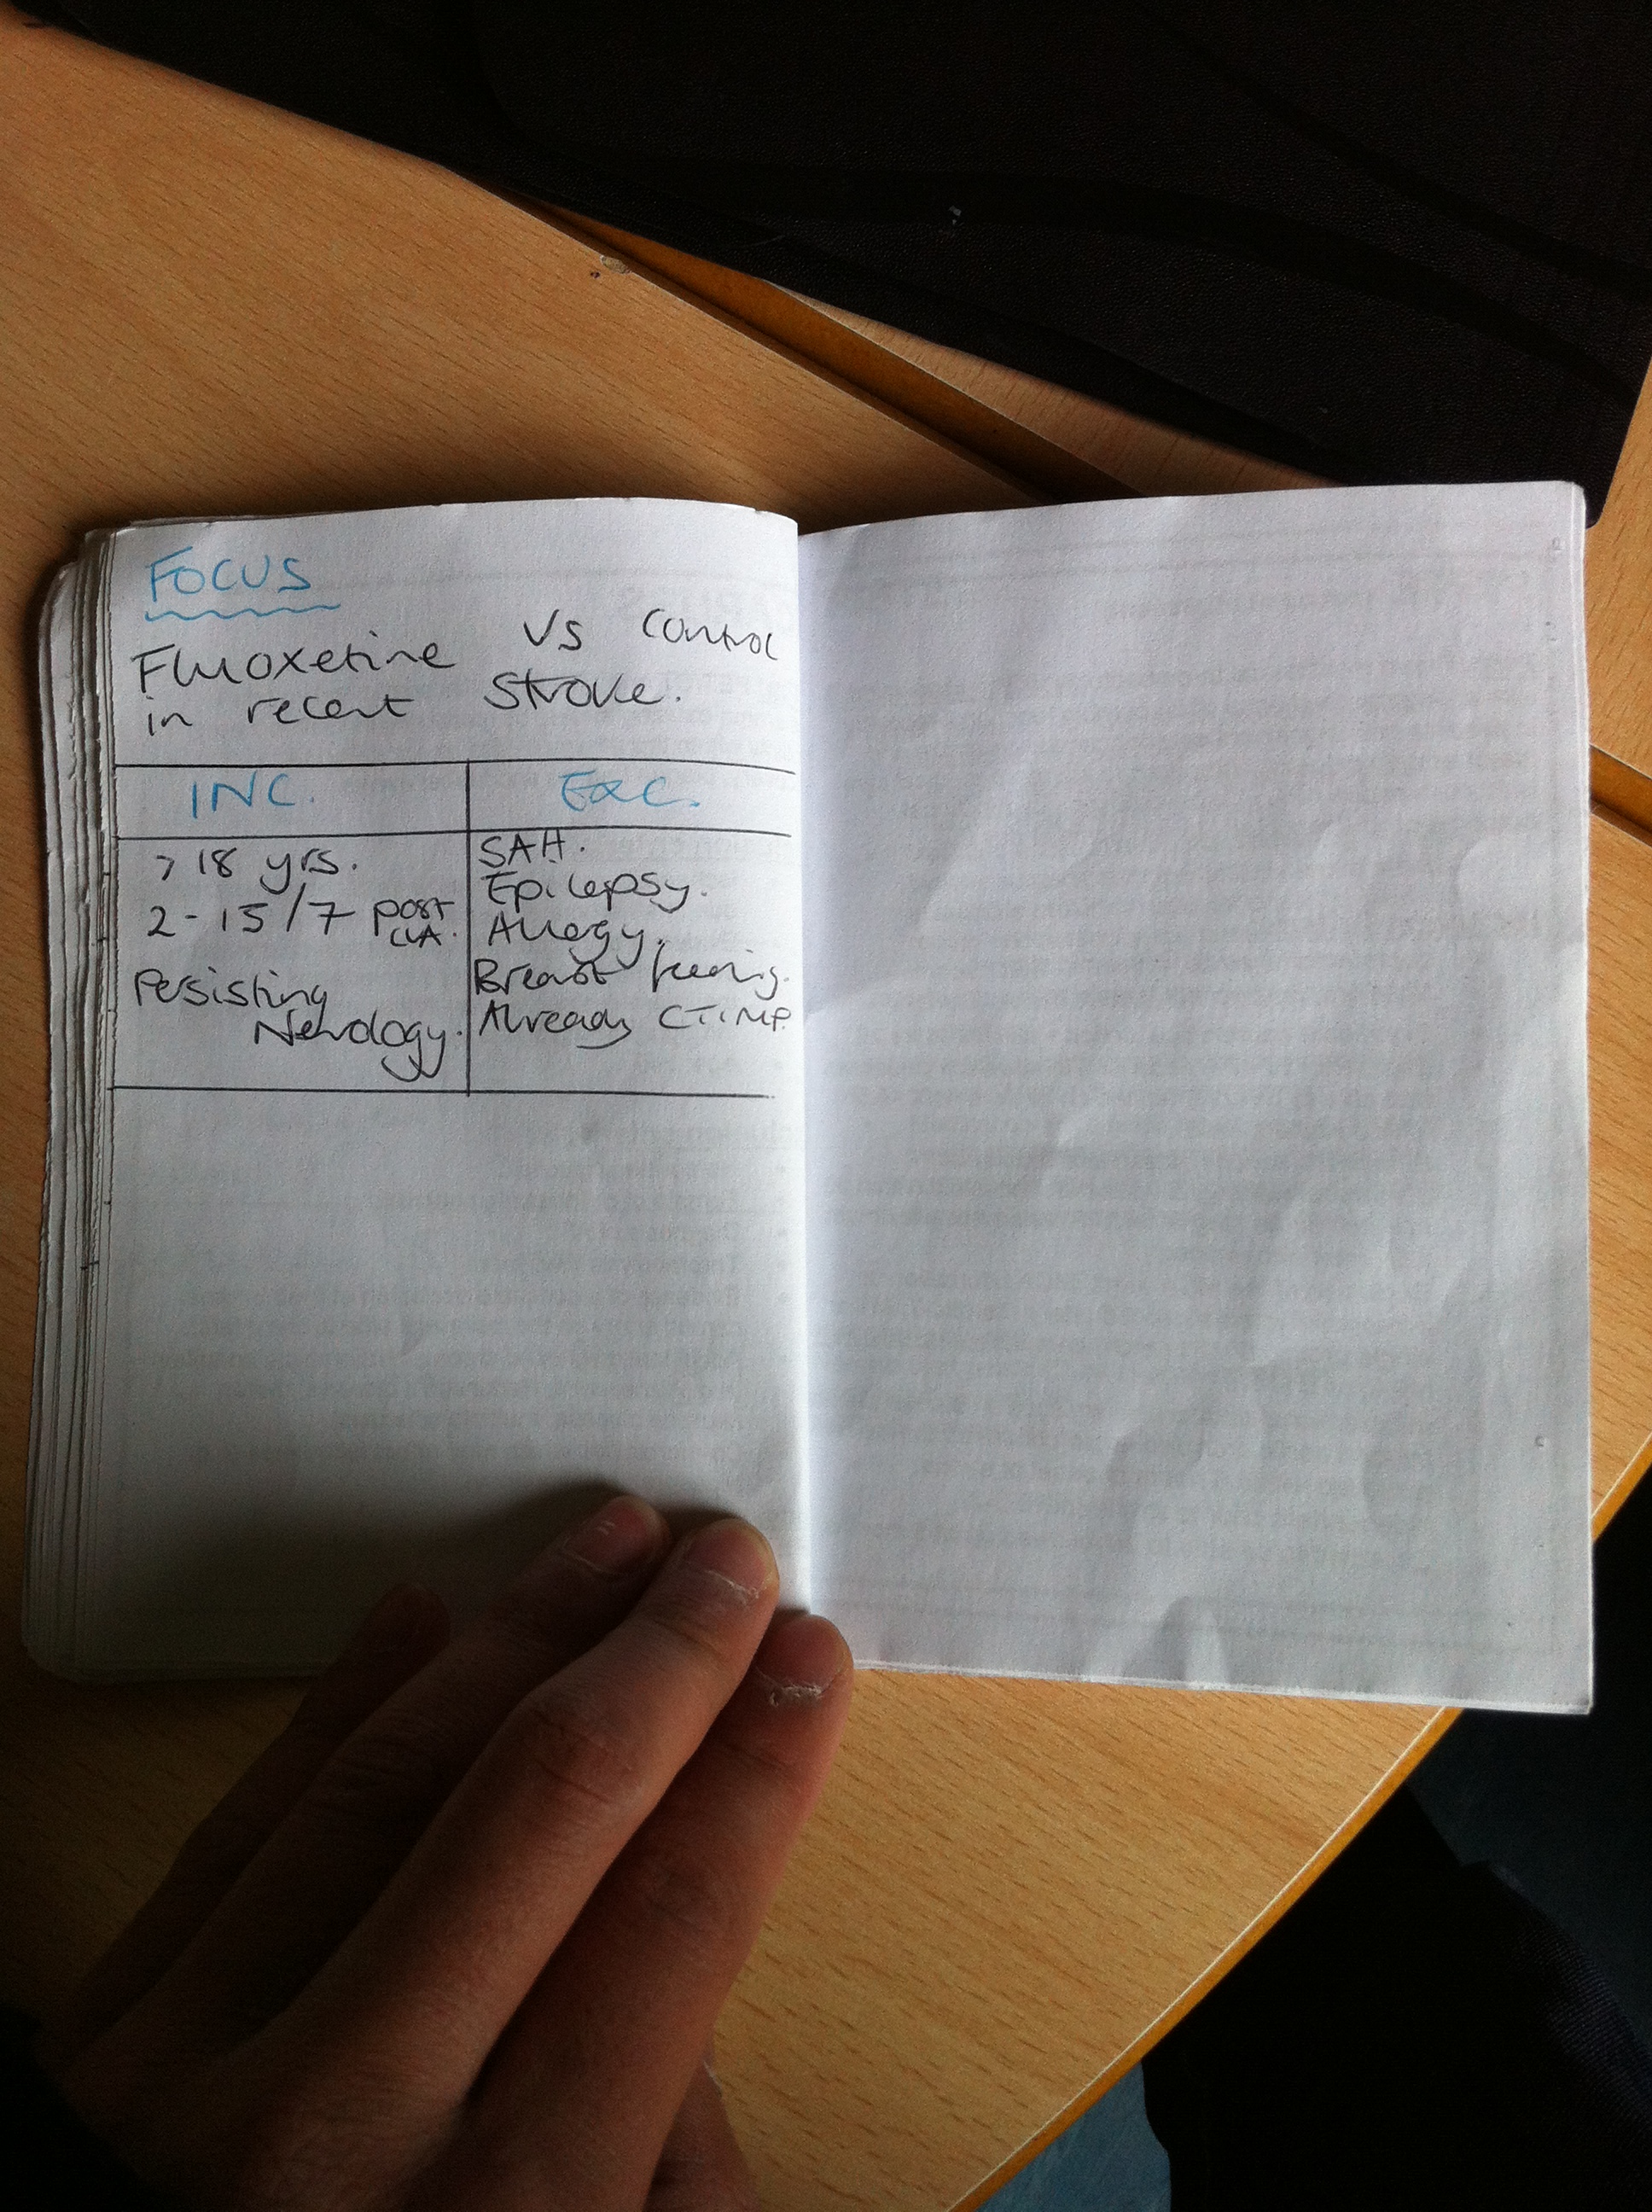 FOCUS
Fluoxetine vs control
in recent stroke.
INC. EXC.
> 18 yrs.
2-15/7 post
CVA.
Persisting
Neurology.
SAH.
Epilepsy.
Allergy.
Breast feeding.
Already CTIMP.